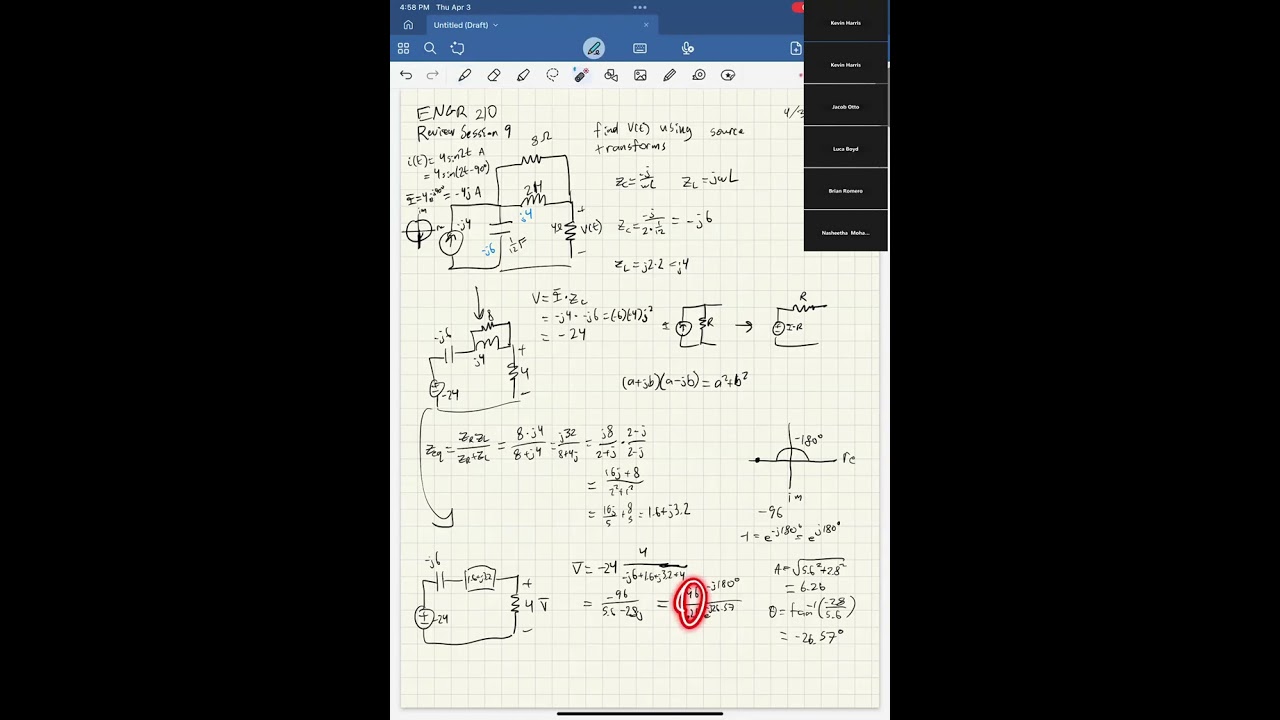 4:58 PM Thu Apr 3
Untitled (Draft)
Kevin Harris
Kevin Harris
Jacob Otto
Luca Boyd
Brian Romero
Nasheetha Moha...
ENGR 210
4/3
Review Session 9
find V(t) using source
transforms
8Ω
i(t)= 4 sin2t A
= 4 sin(2t-90°)
= -4j A
im
2H
j4
-j4
-j6
1/12 F
4Ω
+
V(t)
-
Zc = -j/ωL
ZL = jωL
Zc = -j/(2·1/12) = -j6
ZL = j2·2 = j4
V = I·Zc
= -j4·-j6 = (-6)(-4)j²
= -24
8
-j6
j4
+
4
-
-24
I
R
→
R
I·R
(a+jb)(a-jb) = a²+b²
Zeq = ZRZL/(ZR+ZL) = 8·j4/(8+j4) = j32/(8+4j) = j8/(2+j) · (2-j)/(2-j)
= (16j+8)/(2²+1²)
= 16j/5 + 8/5 = 1.6+j3.2
-180°
re
im
-96
-1 = e^-j180° = e^j180°
-j6
1.6+j3.2
+
4 V
-
-24
V = -24 4/(-j6+1.6+j3.2+4)
= -96/(5.6-2.8j) = 96
-j180°
26.57
A = √(5.6²+2.8²)
= 6.26
θ = tan^-1(-2.8/5.6)
= -26.57°